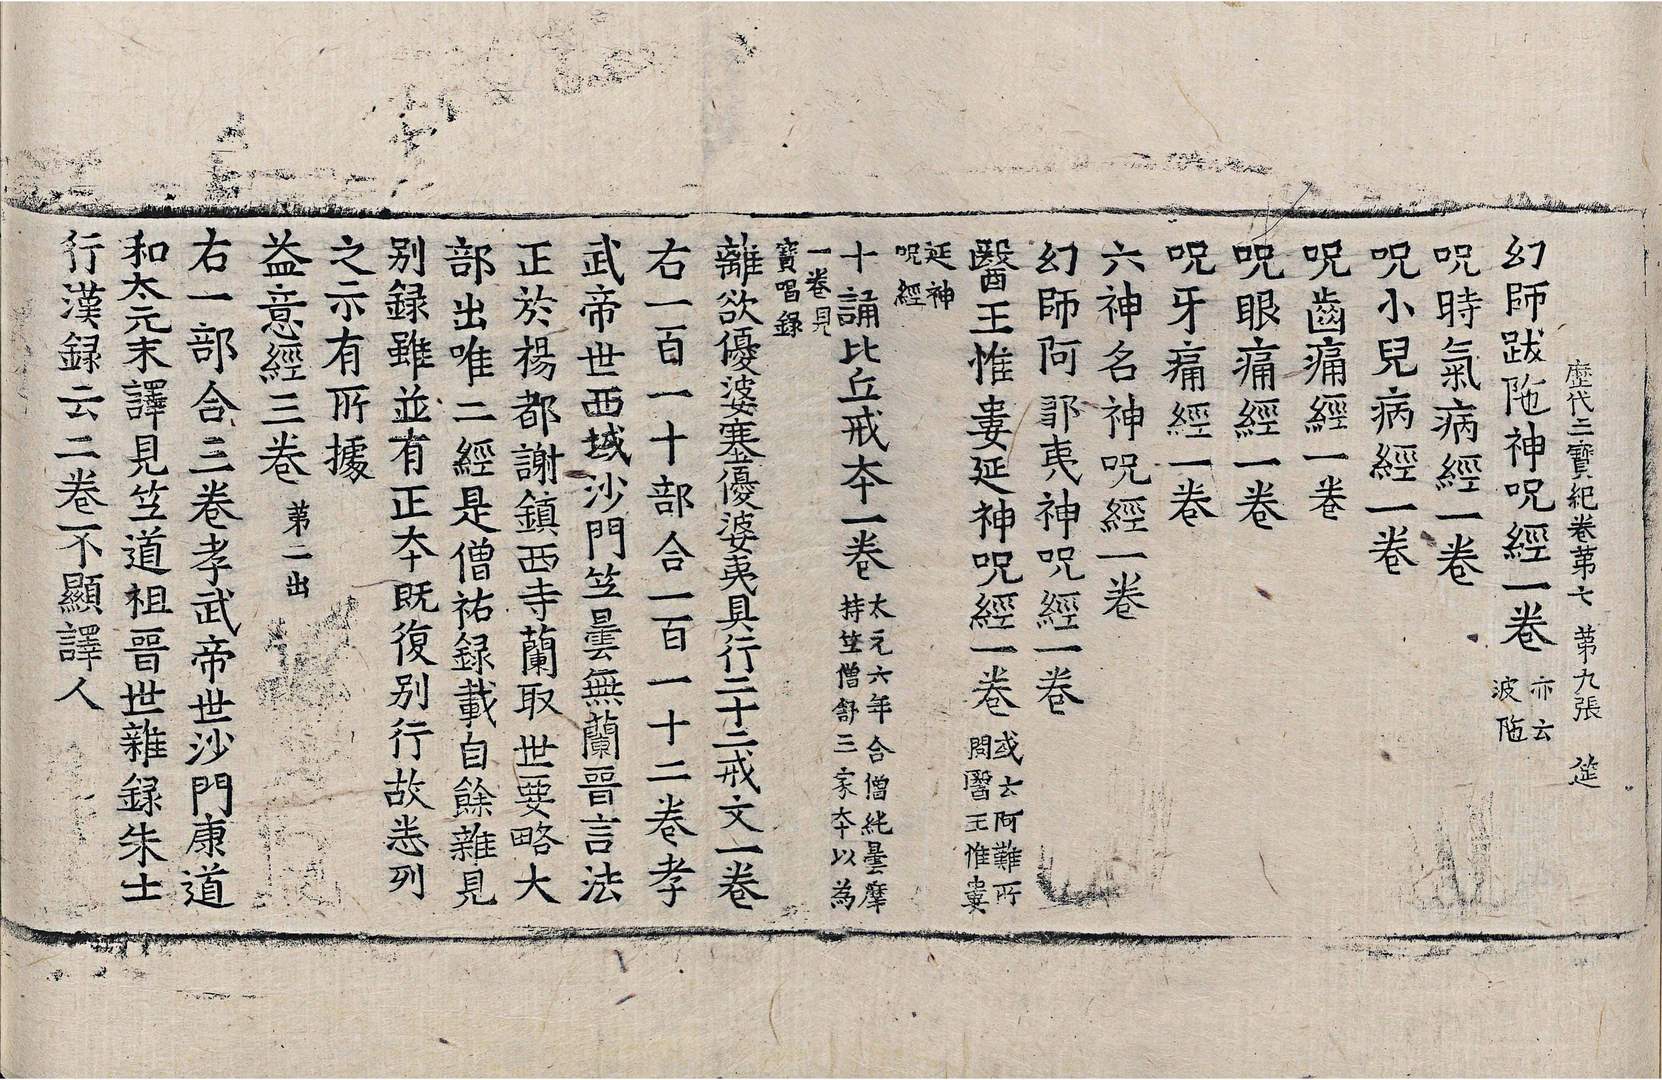 歷代三寶紀卷第七 第九張 筵
幻師跋陁神呪經一卷 亦云波陁
呪時氣病經一卷
呪小兒病經一卷
呪齒痛經一卷
呪眼痛經一卷
呪牙痛經一卷
六神名神呪經一卷
幻師阿鄒夷神呪經一卷
醫王惟婁延神呪經一卷 或云阿難所問醫王惟婁
延神呪經
十誦比丘戒本一卷 太元六年合僧純曇摩持竺僧舒三家本以為
一卷見寶唱録
離欲優婆塞優婆夷具行二十二戒文一卷
右一百一十部合一百一十二卷孝
武帝世西域沙門竺曇無蘭晉言法
正於楊都謝鎮西寺蘭取世要略大
部出唯二經是僧祐録載自餘雜見
別録雖並有正本既復別行故悉列
之示有所據
益意經三卷 第二出
右一部合三卷孝武帝世沙門康道
和太元末譯見竺道祖晉世雜録朱士
行漢録云二卷不顯譯人